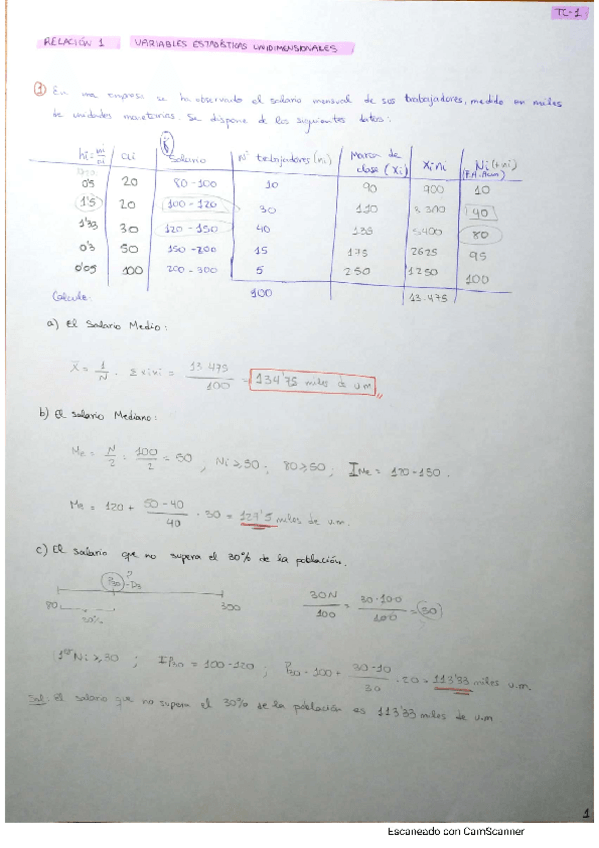 TC-1
RELACIÓN 1 VARIABLES ESTADÍSTICAS UNIDIMENSIONALES
① En una empresa se ha observado el salario mensual de sus trabajadores, medido en miles
de unidades monetarias. Se dispone de los siguientes datos:
hi=ni/ai | ai | Salario | Nº trabajadores (ni) | Marca de clase (xi) | xini | Ni (F.A. Acum)
0'5 | 20 | 80-100 | 10 | 90 | 900 | 10
1'5 | 20 | 100-120 | 30 | 110 | 3.300 | 40
1'33 | 30 | 120-150 | 40 | 135 | 5.400 | 80
0'3 | 50 | 150-200 | 15 | 175 | 2625 | 95
0'05 | 100 | 200-300 | 5 | 250 | 1250 | 100
Calcule: 100 13.475
a) El Salario Medio:
x̄ = 1/N · Σxini = 13.475/100 = 134'75 miles de u.m
b) El Salario Mediano:
Me = N/2 = 100/2 = 50 , Ni ≥ 50 ; 80 ≥ 50 ; I Me = 120-150.
Me = 120 + 50-40/40 · 30 = 127'5 miles de u.m.
c) El Salario que no supera el 30% de la población.
P30 - D3 ?
80 300
30%
30N/100 = 30·100/100 = 30
1er Ni ≥ 30 ; IP30 = 100-120 ; P30 = 100 + 30-10/30 · 20 = 113'33 miles u.m.
Sol: El salario que no supera el 30% de la población es 113'33 miles de u.m
1
Escaneado con CamScanner